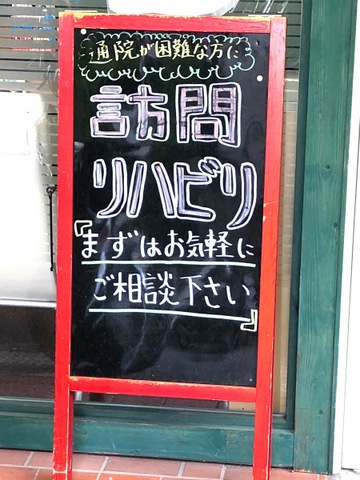 通院が困難な方に
訪問
リハビリ
『まずはお気軽に
ご相談下さい』